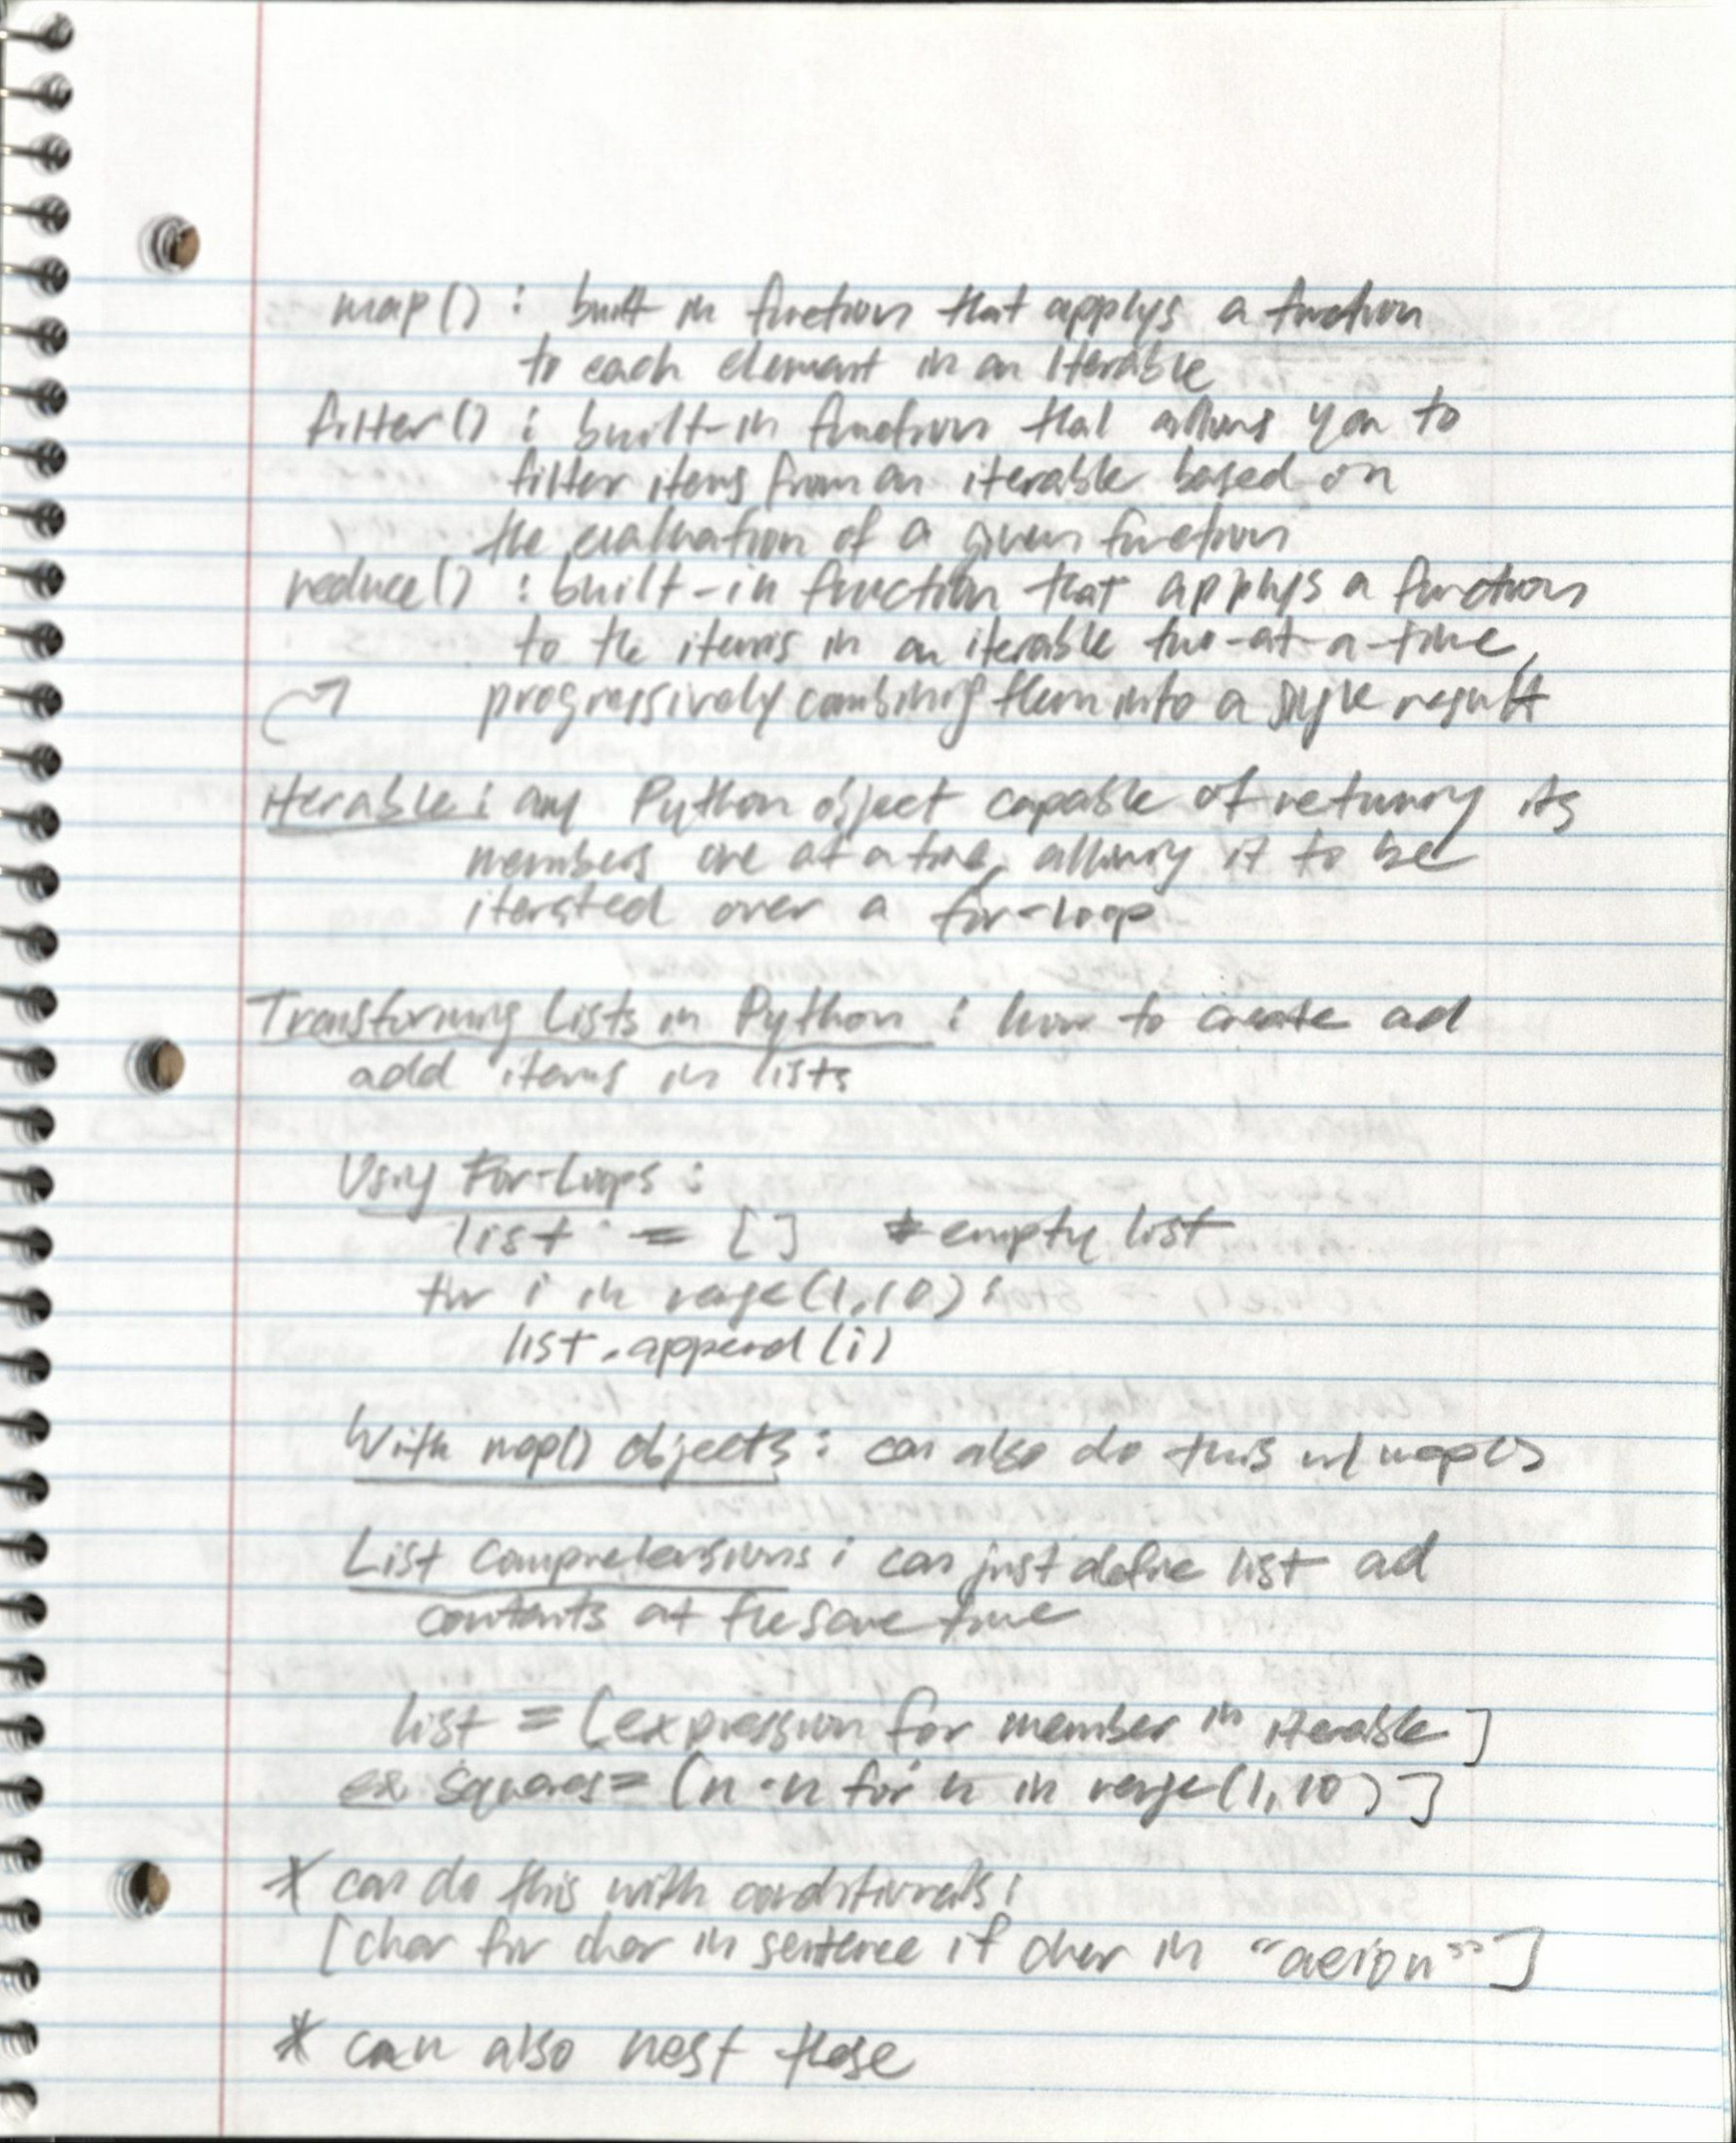 map() : built in function that applys a function
to each element in an iterable
filter() : built-in function that allows you to
filter items from an iterable based on
the evaluation of a given function
reduce() : built-in function that applys a function
to the items in an iterable two-at-a-time,
progressively combining them into a single result
iterable : any Python object capable of returning its
members one at a time, allowing it to be
iterated over a for-loop
Transforming Lists in Python : how to create ad
add items in lists
Using For-Loops :
list = [] # empty list
for i in range(1,10):
list.append(i)
With map() objects : can also do this w/ map()
List Comprehensions : can just define list ad
contents at the same time
list = [expression for member in iterable]
ex squares = [n * n for n in range(1,10)]
* can do this with conditionals :
[char for char in sentence if char in "aeiou"]
* can also nest these